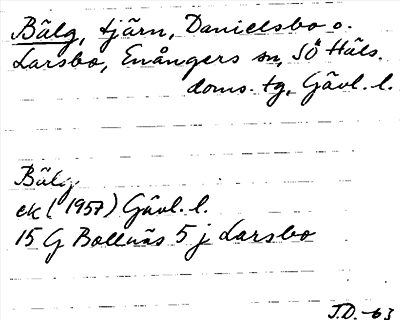 Bälg, tjärn, Danielsbo o.
Larsbo, Enångers sn, SÖ Häls.
doms. tg, Gävl. l.
Bälg
ek (1957) Gävl. l.
15 G Bollnäs 5 j Larsbo
J.D. -63